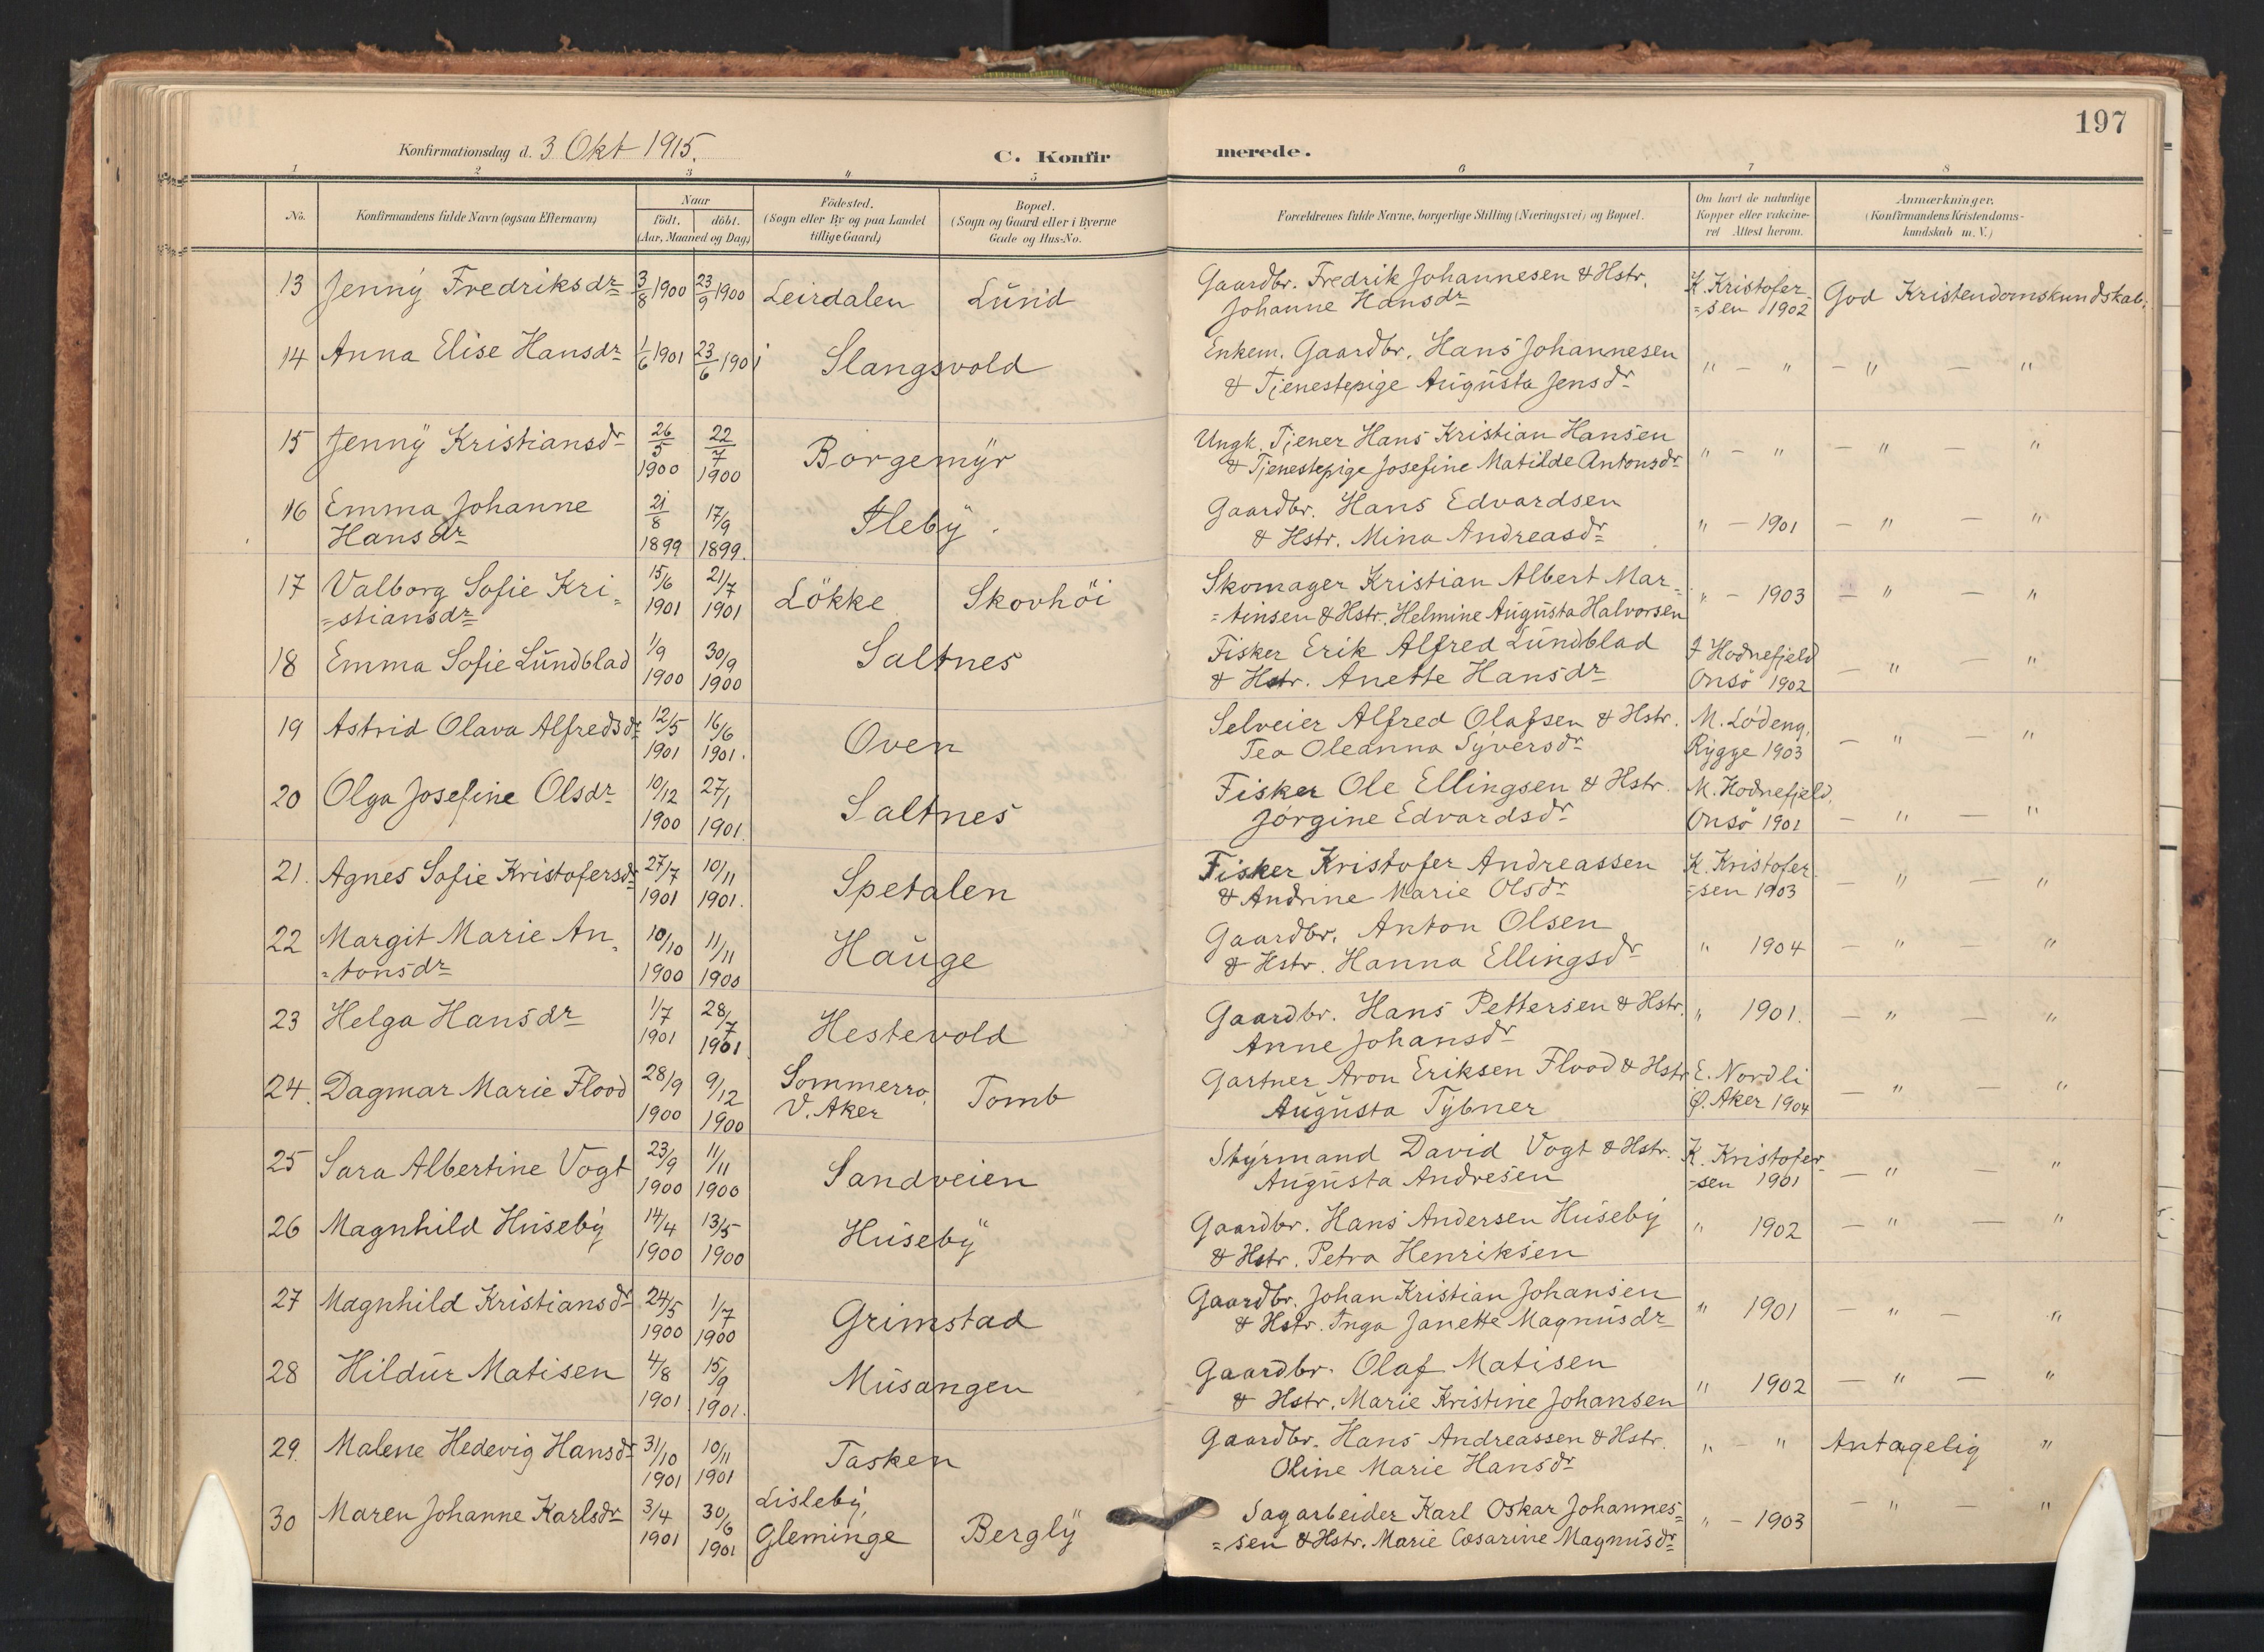 197
Konfirmationsdag d. 3 Okt 1915.
C. Konfir
merede.
1 2 3 4 5 6 7 8
No.
Konfirmandens fulde Navn (ogsaa Efternavn)
Naar
født. döbt.
(Aar, Maaned og Dag)
Födested.
(Sogn eller By og paa Landet
tillige Gaard)
Bopæl.
(Sogn og Gaard eller i Byerne
Gade og Hus-No.
Forældrenes fulde Navne, borgerlige Stilling (Næringsvei) og Bopæl.
Om havt de naturlige
Kopper eller vakcine-
ret Attest herom.
Anmærkninger.
(Konfirmandens Kristendoms-
kundskab m. V.)
13 Jenny Fredriksdr 3/8 1900 23/9 1900 Leirdalen Lund Gaardbr. Fredrik Johannesen & Hstr. K. Kristofer- God Kristendomskundskab.
Johanne Hansdr =sen 1902
14 Anna Elise Hansdr 1/6 1901 23/6 1901 Slangsvold Enkem. Gaardbr. Hans Johannesen " - " - " - "
& Tjenestepige Augusta Jensdr
15 Jenny Kristiansdr 26/5 1900 22/7 1900 Borgemyr Ungk. Tjener Hans Kristian Hansen " - " - " - "
& Tjenestepige Josefine Matilde Antonsdr
16 Emma Johanne 21/8 1899 17/9 1899. Fleby. Gaardbr. Hans Edvardsen " - 1901 - " - "
Hansdr & Hstr. Mina Andreasdr
17 Valborg Sofie Kri= 15/6 1901 21/7 1901 Lökke Skovhöi Skomager Kristian Albert Mar= " - 1903 - " - "
=stiansdr =tinsen & Hstr. Helmine Augusta Halvorsen
18 Emma Sofie Lundblad 1/9 1900 30/9 1900 Saltnes Fisker Erik Alfred Lundblad J Hodnefjeld - " - "
& Hstr. Anette Hansdr Onsö 1902
19 Astrid Olava Alfredsdr 12/5 1901 16/6 1901. Oven Selveier Alfred Olafsen & Hstr. M. Lödeng, - " - "
Tea Oleanna Syversdr Rygge 1903
20 Olga Josefine Olsdr 10/12 1900 27/1 1901. Saltnes Fisker Ole Ellingsen & Hstr. M. Hodnefjeld, - " - "
Jörgine Edvardsdr Onsö 1901
21. Agnes Sofie Kristofersdr 27/7 1901 10/11 1901. Spetalen Fisker Kristofer Andreassen K. Kristofer- - " - "
& Andrine Marie Olsdr =sen 1903
22 Margit Marie An= 10/10 1900 11/11 1900 Hauge Gaardbr. Anton Olsen " 1904 - " - "
=tonsdr & Hstr. Hanna Ellingsdr
23 Helga Hansdr 1/7 1901 28/7 1901 Hestevold Gaardbr. Hans Pettersen & Hstr. " 1901. - " - "
Anne Johansdr
24. Dagmar Marie Flood 28/9 1900 9/12 1900 Sommerro, Tomb Gartner Aron Eriksen Flood & Hstr E. Nordli - " - "
V. Aker Augusta Tybner Ø. Aker 1904
25 Sara Albertine Vogt 23/9 1900 11/11 1900 Sandveien Styrmand David Vogt & Hstr. K. Kristofer- - " - "
Augusta Andresen =sen 1901
26 Magnhild Huseby 14/4 1900 13/5 1900 Huseby Gaardbr. Hans Andersen Huseby " 1902 - " - "
& Hstr. Petra Henriksen
27 Magnhild Kristiansdr 24/5 1900 1/7 1900 Grimstad Gaardbr. Johan Kristian Johansen " 1901 - " - "
& Hstr. Inga Janette Magnusdr
28 Hildur Matisen 4/8 1901 15/9 1901. Musangen Gaardbr. Olaf Matisen " 1902 - " - "
& Hstr. Marie Kristine Johansen
29. Malene Hedevig Hansdr 31/10 1901 10/11 1901 Tasken Gaardbr. Hans Andreassen & Hstr. " - " Antagelig "
Oline Marie Hansdr
30 Maren Johanne Karlsdr 3/4 1901 30/6 1901 Lisleby, Bergly Sagarbeider Karl Oskar Johannes= " - 1903 - " - "
Gleminge =sen & Hstr. Marie Cæsarine Magnusdr